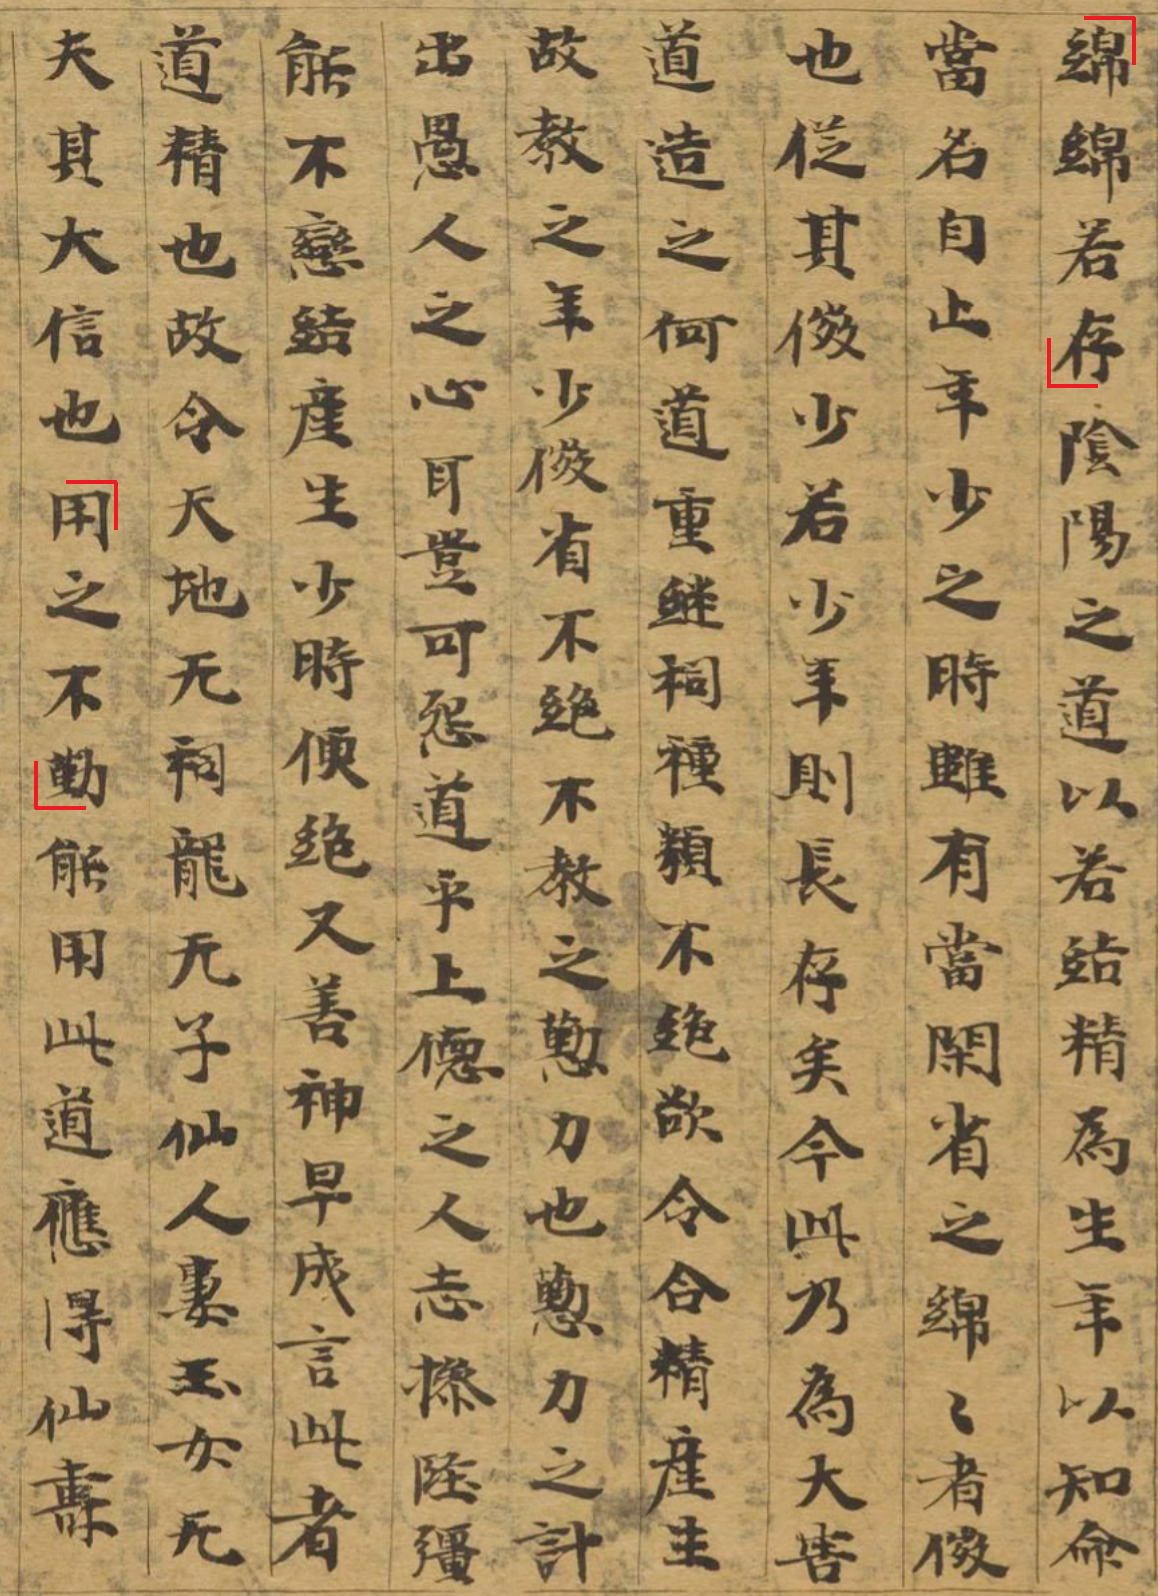 綿綿若存陰陽之道以若結精為生年以知命
當名自止年少之時雖有當閑省之綿〻者㣲
也従其㣲少若少年則長存矣今此乃為大害
道造之何道重継祠種類不絶欲令合精産生
故教之年少㣲省不絶不教之懃力也懃力之計
出愚人之心耳豈可怨道乎上德之人志操堅彊
能不戀結産生少時便絶又善神早成言此者
道精也故令天地无祠龍无子仙人妻玉女无
夫其大信也用之不勤能用此道應得仙壽